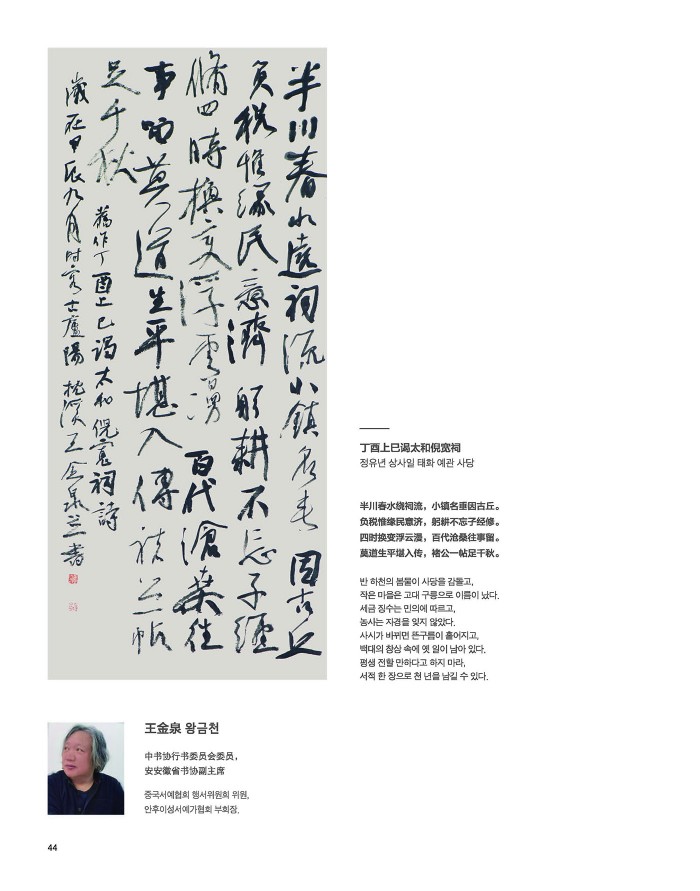 半川春水遶祠流小鎮名重因古丘
負税惟緣民意濟躬耕不忘子經
脩四時換變浮雲漫百代滄桑往
事留莫道生平堪入傳褚公一帖
足千秋 舊作丁酉上巳謁太和倪寬祠詩
歲在甲辰九月時客古廬陽枕溪王金泉並書
丁酉上巳谒太和倪宽祠
정유년 상사일 태화 예관 사당
半川春水绕祠流，小镇名重因古丘。
负税惟缘民意济，躬耕不忘子经修。
四时换变浮云漫，百代沧桑往事留。
莫道生平堪入传，褚公一帖足千秋。
반 하천의 봄물이 사당을 감돌고,
작은 마을은 고대 구릉으로 이름이 났다.
세금 징수는 민의에 따르고,
농사는 자경을 잊지 않았다.
사시가 바뀌면 뜬구름이 흩어지고,
백대의 창상 속에 옛 일이 남아 있다.
평생 전할 만하다고 하지 마라,
서적 한 장으로 천 년을 남길 수 있다.
王金泉 왕금천
中书协行书委员会委员，
安安徽省书协副主席
중국서예협회 행서위원회 위원,
안후이성서예가협회 부회장.
44